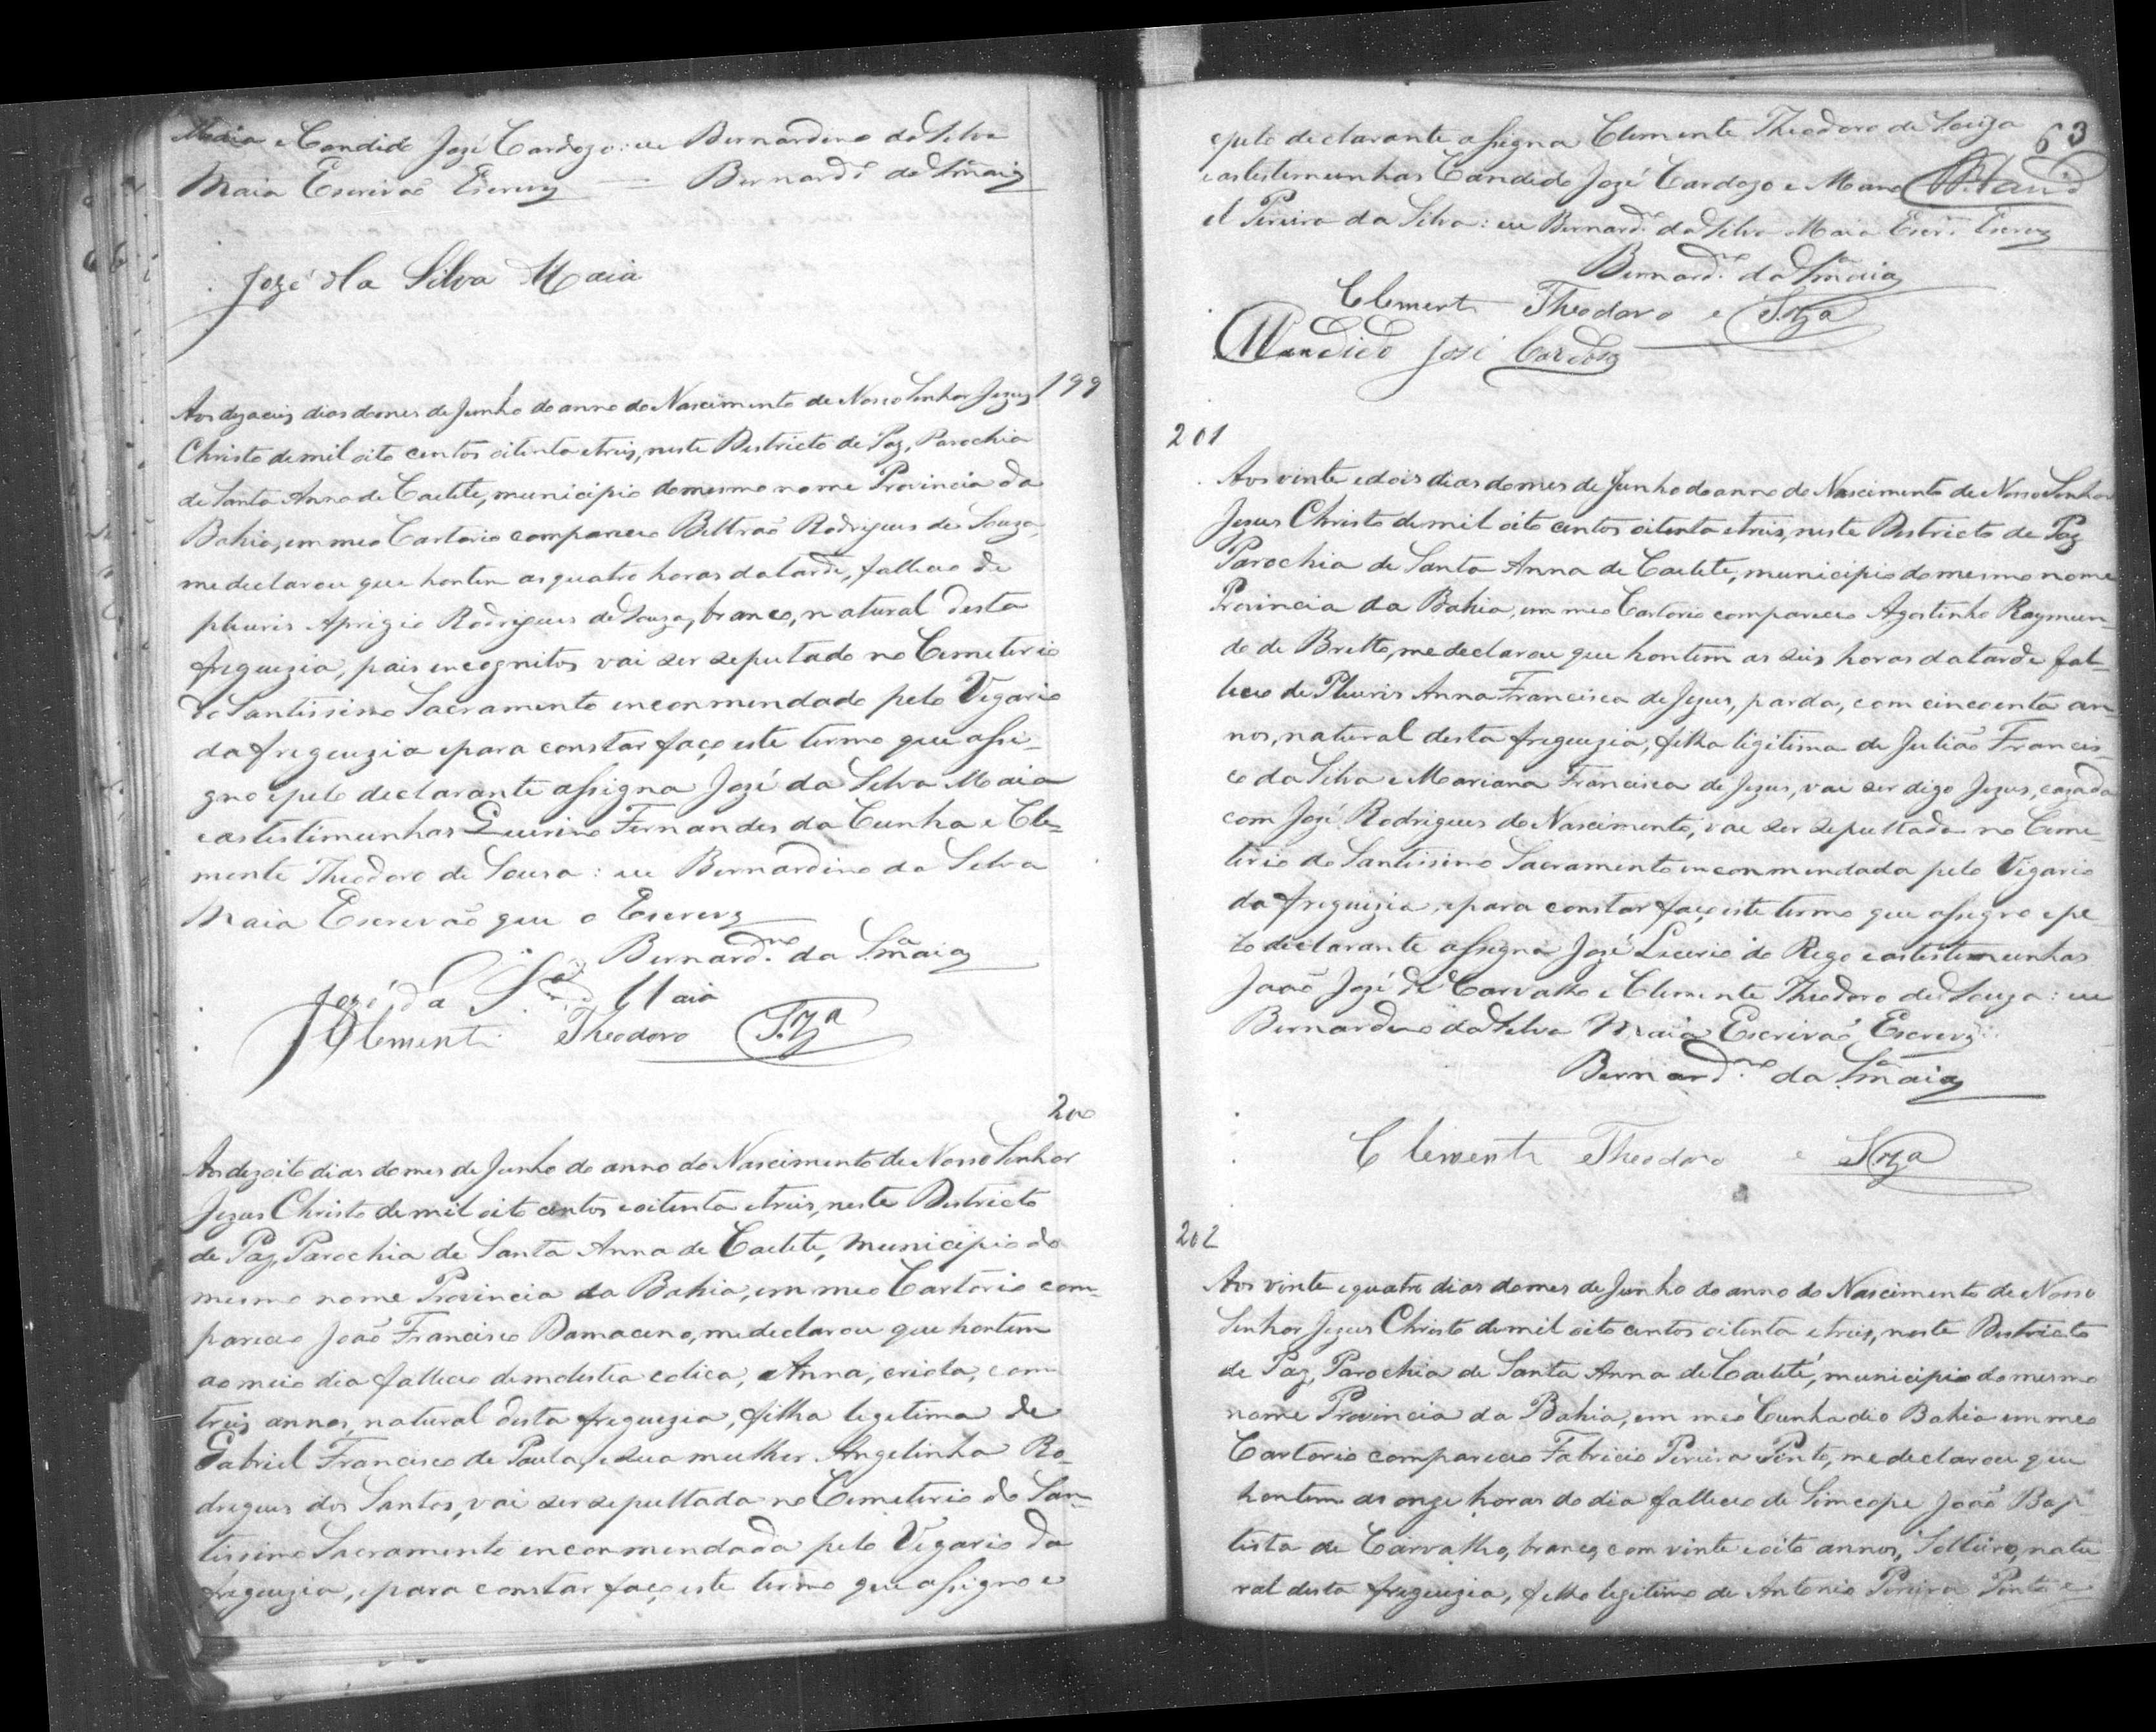 Maia e Candido Jozé Cardozo: eu Bernardino da Silva
Maia Escrivaõ Escrevy = Bernard.º da S.ª Maia
Jozé da Silva Maia
199
Aos dezaceis dias do mes de Junho do anno do Nascimento de Nosso Senhor Jezuz
Christo de mil oito centos oitenta e treis, neste Destricto de Paz, Parochia
de Santa Anna de Caetete, municipio do mesmo nome Provincia da
Bahia, em meo Cartorio compareceo Beltraõ Rodrigues de Souza,
me declarou que hontem as quatro horas da tarde, falleceo de
pleuris Aprigio Rodrigues de Souza, branco, natural desta
freguezia, pais incognitos vai ser sepultado no Cemeterio
do Santissimo Sacramento enconmendado pelo Vigario
da freguezia e para constar faço este termo que assi-
gno e pelo declarante assigna Jozé da Silva Maia
e as testimunhas Guerino Fernandes da Cunha e Cle-
mente Theodoro de Sousa: eu Bernardino da Silva
Maia Escrevaõ que o Escrevy
Bernard.no da S.ª Maia
Jozé da S.ª Maia
Clemente Theodoro S.za
200
Aos dezoito dias do mes de Junho do anno do Nascimento de Nosso Senhor
Jezus Christo de mil oito centos e oitenta e treis, neste Destricto
de Paz, Parochia de Santa Anna de Caetete, municipio do
mesmo nome Provincia da Bahia, em meo Cartorio com-
pareceo Joaõ Francisco Damaceno, me declarou que hontem
ao meio dia falleceo de molestia colica, Anna, criola, com
treis annos, natural desta freguezia, filha legetima de
Gabriel Francisco de Paula, e sua mulher Angelinha Ro-
drigues dos Santos, vai ser sepultada no Cemeterio do San-
tissimo Sacramento enconmendada pelo Vigario da
freguezia, e para constar faço este termo que assigno e
63
e pelo declarante assigna Clemente Theodoro de Souza
e as testemunhas Candido Jozé Cardozo e Mano
el Pereira da Silva: eu Bernard.º da Silva Maia Escr.m Escrevy
Bernard.º da S.ª Maia
Clemente Theodoro e S.za
Candido José Cardoso
201
Aos vinte e dois dias do mes de Junho do anno do Nascimento de Nosso Senhor
Jezus Christo de mil oito centos oitenta e treis, neste Destricto de Paz
Parochia de Santa Anna de Caetete, municipio do mesmo nome
Provincia da Bahia, em meo Cartorio compareceo Agostinho Raymun-
do de Britto, me declarou que hontem as seis horas da tarde fal-
leceo de Pleuris Anna Francisca de Jezus, parda, com cincoenta an-
nos, natural desta freguezia, filha ligitima de Juliaõ Francis-
co da Silva e Mariana Francisca de Jezus, vai ser digo Jezus, cazada
com Jozé Rodrigues do Nascimento, vae ser sepultada no Ceme-
terio do Santissimo Sacramento enconmendada pelo Vigario
da freguizia, e para constar faço este termo que assigno e pe-
lo declarante assigna Jozé Licerio do Rego e as testemunhas
Joaõ Jozé de Carvalho e Clemente Theodoro de Souza: eu
Bernardino da Silva Maia Escrivaõ Escrevy
Bernard.no da S.ª Maia
Clemente Theodoro e S.za
202
Aos vinte e quatro dias do mes de Junho do anno do Nascimento de Nosso
Senhor Jezus Christo de mil oito centos oitenta e treis, neste Destricto
de Paz, Parochia de Santa Anna de Caetité, municipio do mesmo
nome Provincia da Bahia, em meo Cunha dio Bahia em meo
Cartorio compareceo Fabricio Pereira Pinto, me declarou que
hontem as onze horas do dia falleceo de Simcope Joaõ Bap-
tista de Carvalho, branco, com vinte e oito annos, Solteiro, natu
ral desta freguezia, filho legitimo de Antonio Pereira Pinto e